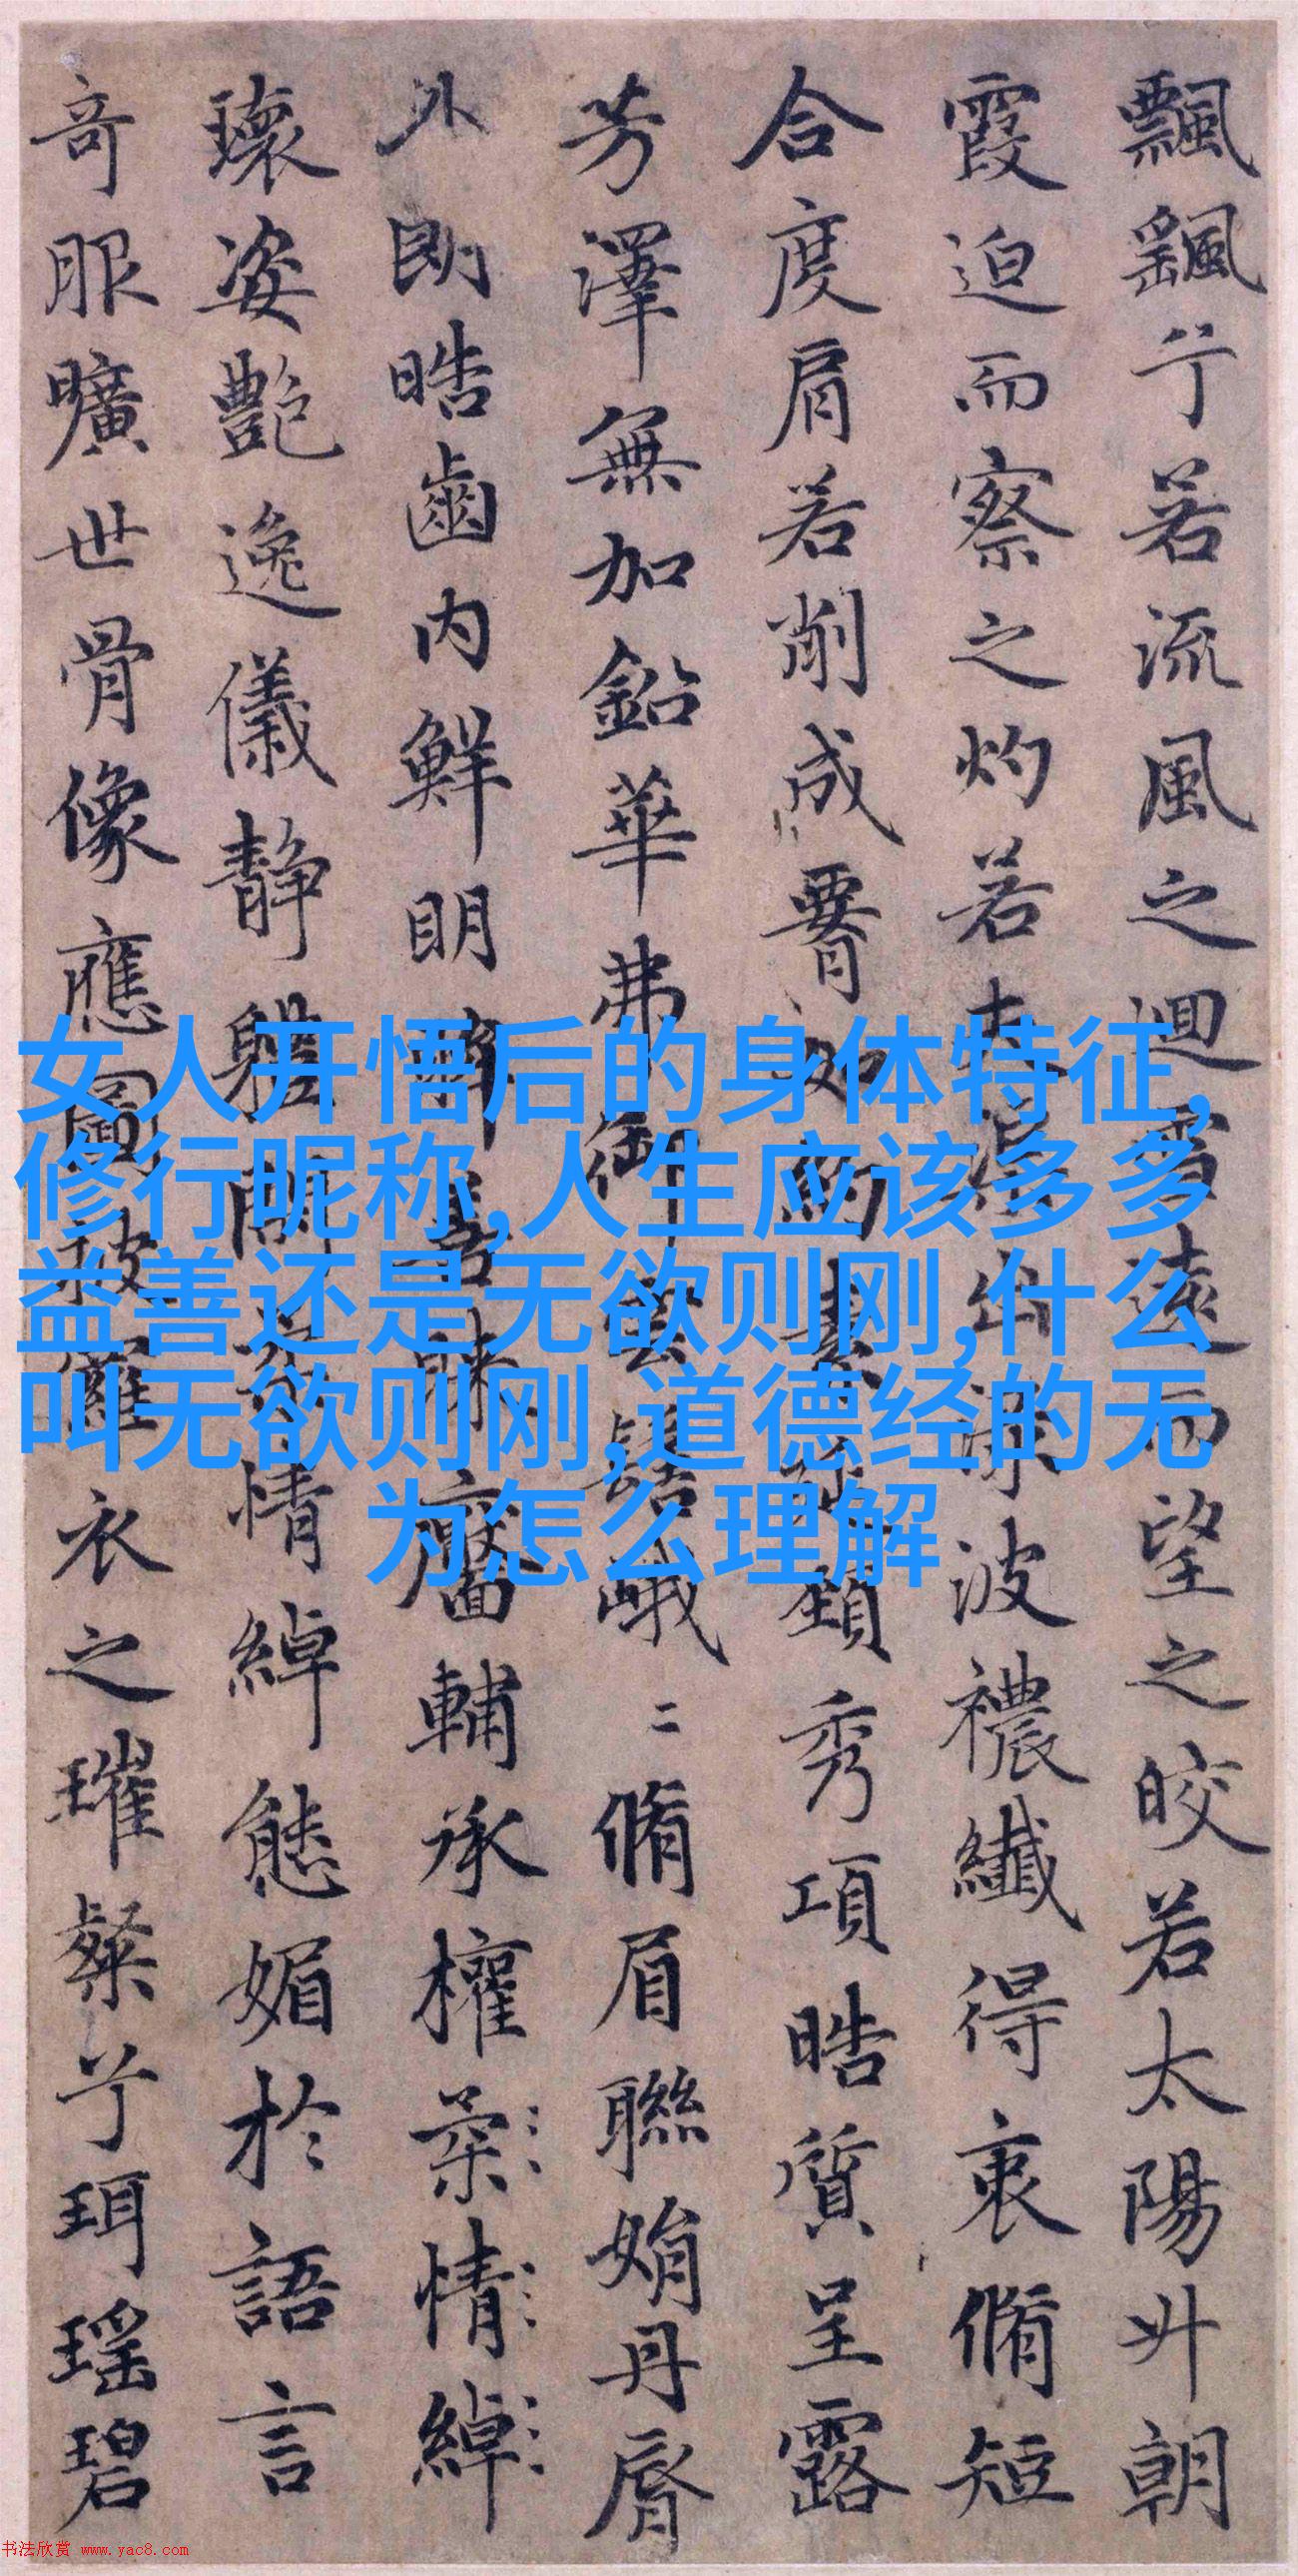 飄飖兮若流風之迴雪遠而望之皎若太陽升朝
霞迫而察之灼若夫渠出淥波襛纖得衷脩短
合度肩若削成署如約素延頸秀項皓質呈露
芳澤無加鉛華弗御雲髻峨二脩眉聯娟丹脣
外朗皓齒内鮮明眸善睞靨輔承權柔情綽
瓌姿艷逸儀静體閑柔情綽態媚於語言
奇服曠世骨像應圖披羅衣之璀粲兮珥瑶碧
女人开悟后的身体特征,
修行昵称,人生应该多多
益善还是无欲则刚,什么
叫无欲则刚,道德经的无
为怎么理解
书法欣赏 www.yac8.com